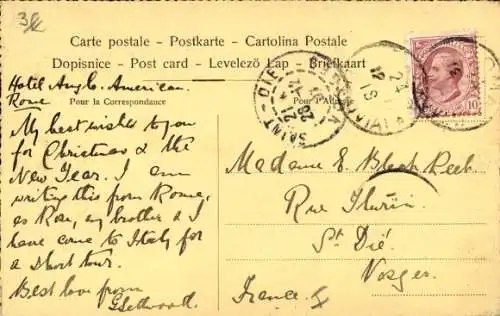 3
Carte postale - Postkarte - Cartolina Postale
Dopisnice - Post card - Levelező Lap - Briefkaart
Pour la Correspondance
Hotel Anglo-American
Rome
My best wishes to you
for Christmas & the
New Year. I am
writing this from Rome,
as Rose, my brother & I
have come to Italy for
a short tour.
Best love from
Madame E. Bloch
Rue
St Dié
Vosges
France
SAINT-DIE
10